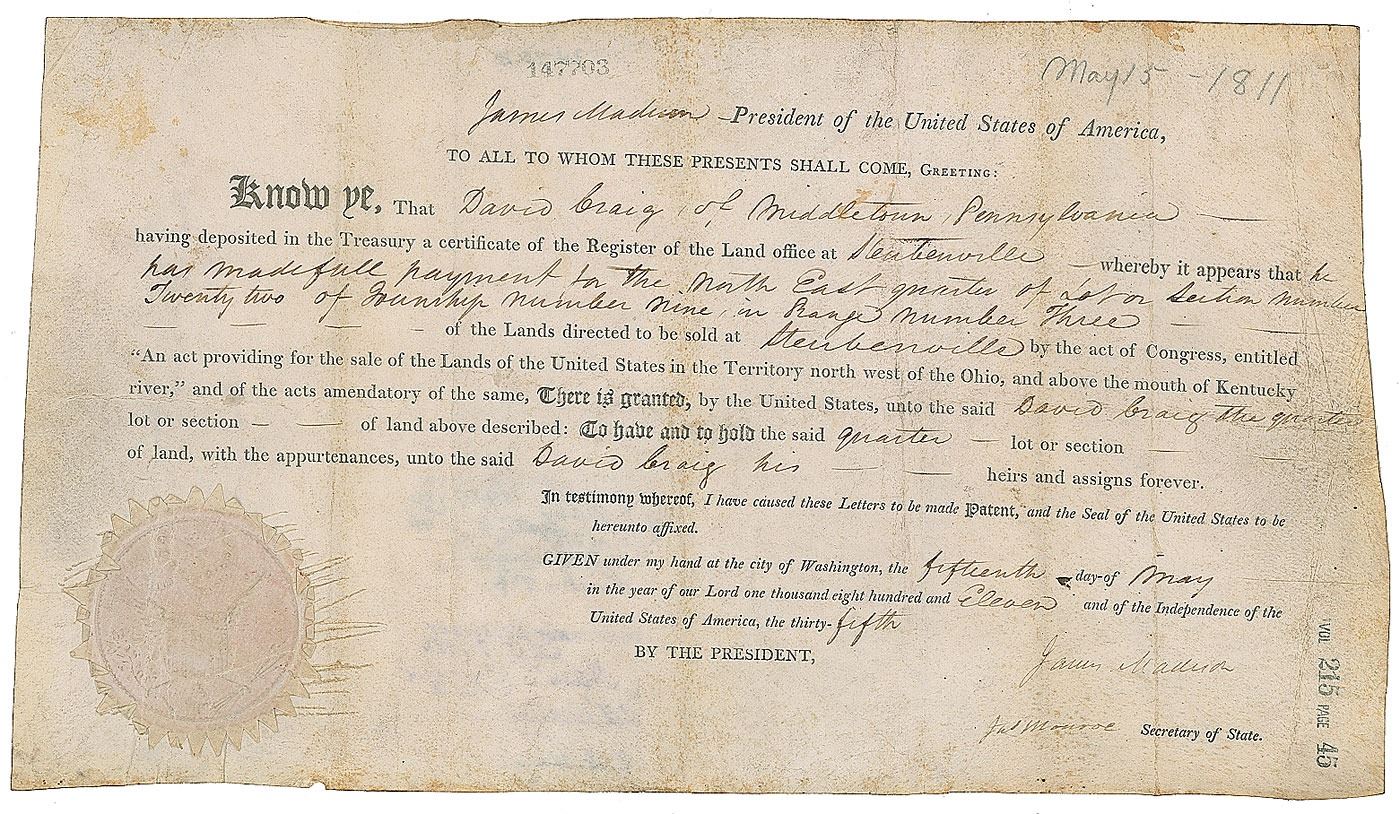 147703
May 15 - 1811
James Madison President of the United States of America,
TO ALL TO WHOM THESE PRESENTS SHALL COME, GREETING:
Know ye, That David Craig, of Middletown, Pennsylvania
having deposited in the Treasury a certificate of the Register of the Land office at Steubenville whereby it appears that he
has made full payment for the North East quarter of Lot or Section number
Twenty two of Township number nine, in Range number Three
of the Lands directed to be sold at Steubenville by the act of Congress, entitled
"An act providing for the sale of the Lands of the United States in the Territory north west of the Ohio, and above the mouth of Kentucky
river," and of the acts amendatory of the same, There is granted, by the United States, unto the said David Craig the quarter
lot or section — — of land above described: To have and to hold the said quarter — lot or section —
of land, with the appurtenances, unto the said David Craig his — — heirs and assigns forever.
In testimony whereof, I have caused these Letters to be made Patent, and the Seal of the United States to be
hereunto affixed.
GIVEN under my hand at the city of Washington, the fifteenth day of May
in the year of our Lord one thousand eight hundred and Eleven and of the Independence of the
United States of America, the thirty-fifth
BY THE PRESIDENT,
James Madison
Jas Monroe Secretary of State.
VOL 215 PAGE 45